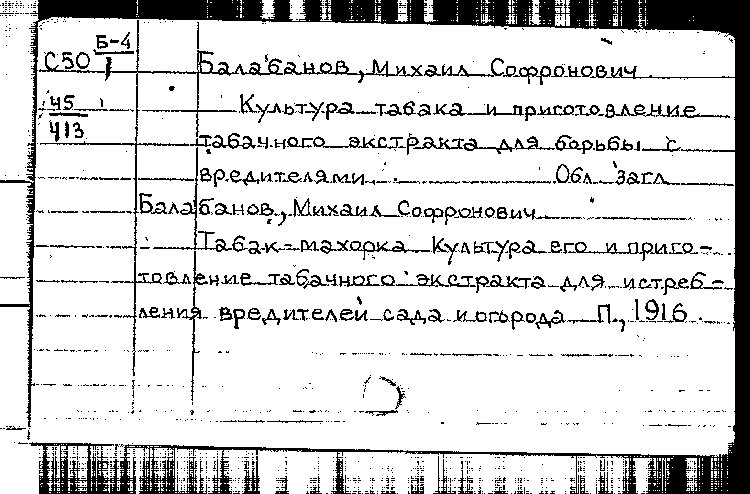 Б-4
С50 1 Балабанов, Михаил Софронович
45 Культура табака и приготовление
413 табачного экстракта для борьбы с
вредителями. Обл загл
Балабанов, Михаил Софронович
Табак-махорка Культура его и приго-
товление табачного экстракта для истреб-
ления вредителей сада и огорода П., 1916.